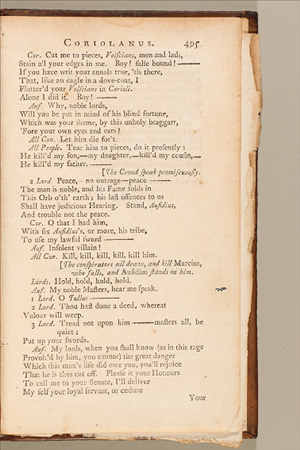 CORIOLANUS. 495
Cor. Cut me to pieces, Volscians, men and lads,
Stain all your edges in me. Boy! false hound!——
If you have writ your annals true, 'tis there,
That, like an eagle in a dove-coat, I
Flutter'd your Volscians in Corioli.
Alone I did it. Boy!——
Auf. Why, noble lords,
Will you be put in mind of his blind fortune,
Which was your shame, by this unholy braggart,
'Fore your own eyes and ears?
All Con. Let him die for't.
All People. Tear him to pieces, do it presently:
He kill'd my son,—my daughter,—kill'd my cousin,—
He kill'd my father.——
[The Croud speak promiscuously.
2 Lord Peace,— no outrage—peace——
The man is noble, and his Fame folds in
This Orb o'th' earth; his last offences to us
Shall have judicious Hearing. Stand, Aufidius,
And trouble not the peace.
Cor. O that I had him,
With six Aufidius's, or more, his tribe,
To use my lawful sword——
Auf. Insolent villain!
All Con. Kill, kill, kill, kill, kill him.
[The conspirators all draw, and kill Marcius,
who falls, and Aufidius stands on him.
Lords. Hold, hold, hold, hold.
Auf. My noble Masters, hear me speak.
1 Lord. O Tullus——
2 Lord. Thou hast done a deed, whereat
Valour will weep.
3 Lord. Tread not upon him——masters all, be
quiet;
Put up your swords.
Auf. My lords, when you shall know (as in this rage
Provok'd by him, you cannot) the great danger
Which this man's life did owe you, you'll rejoice
That he is thus cut off. Please it your Honours
To call me to your Senate, I'll deliver
My self your loyal servant, or endure
Your